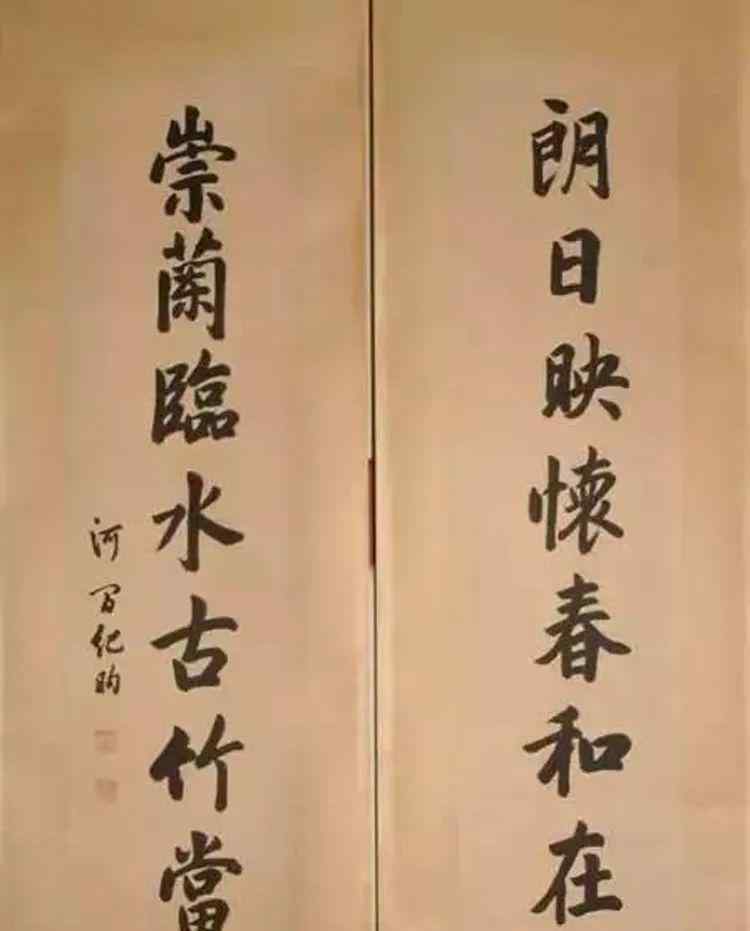 朗日映懷春和在
崇蘭臨水古竹當
河間紀昀